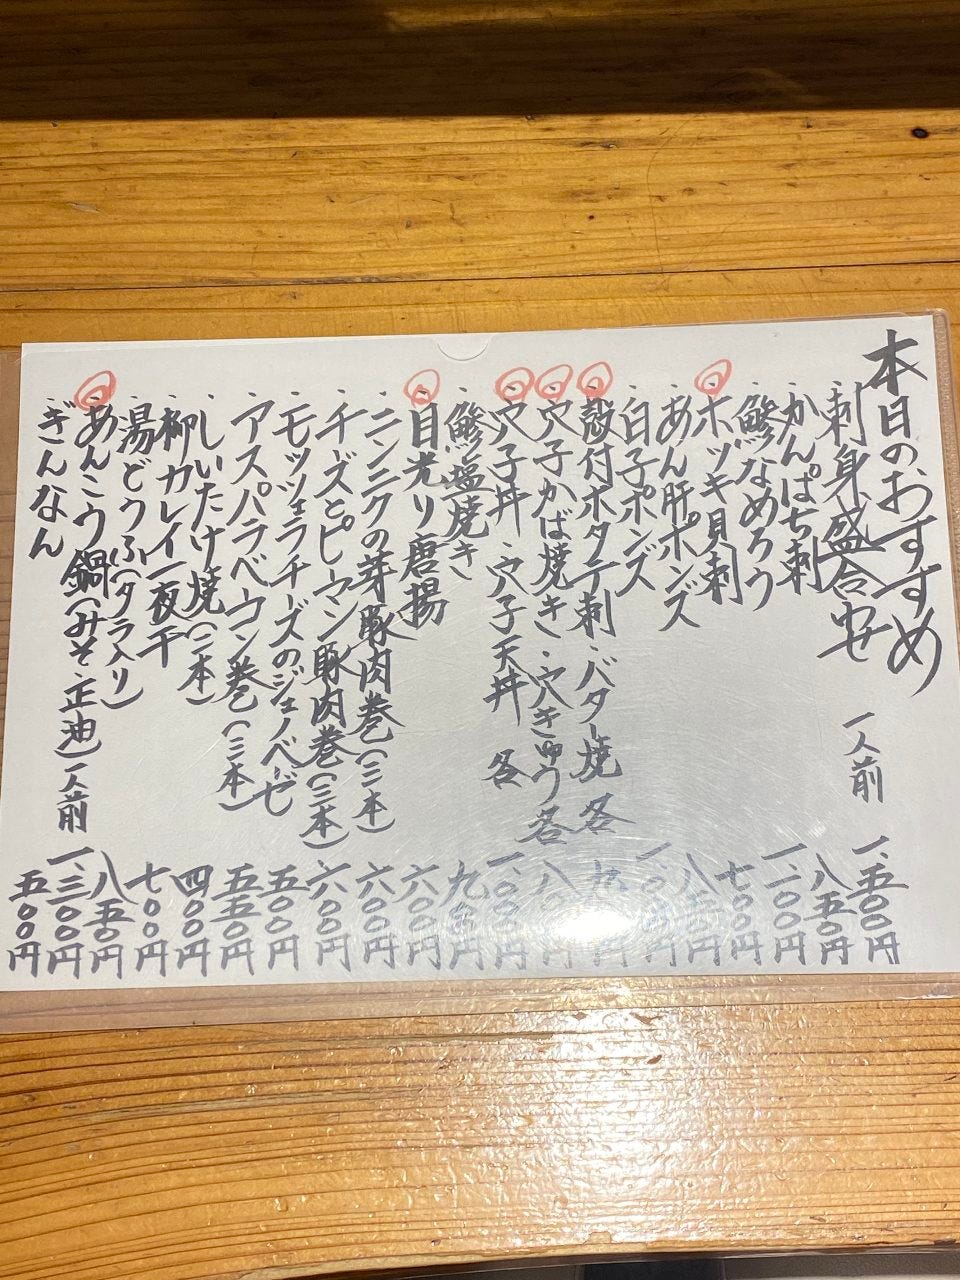 本日のおすすめ
・刺身盛合せ 一人前 一、五〇〇円
・かんぱち刺 八五〇円
・鯵なめろう 一、一〇〇円
・ホッキ貝刺 七〇〇円
・あん肝ポンズ 八五〇円
・白子ポンズ 一、〇〇〇円
・殻付ホタテ刺・バター焼 各 九 円
・穴子かば焼き・穴きゅう 各 八〇 円
・穴子丼 穴子天丼 各 一、〇〇〇円
・鯵塩焼き 九〇〇円
・目光り唐揚 六〇〇円
・ニンニクの芽豚肉巻(二本) 六〇〇円
・チーズとピーマン豚肉巻(二本) 六〇〇円
・モッツェラチーズのジェノベーゼ 五〇〇円
・アスパラベーコン巻(二本) 五五〇円
・しいたけ焼(二本) 四〇〇円
・柳カレイ一夜干 七〇〇円
・湯どうふ(タラ入り) 八五〇円
・あんこう鍋(みそ・正油)一人前 一、三〇〇円
・ぎんなん 五〇〇円